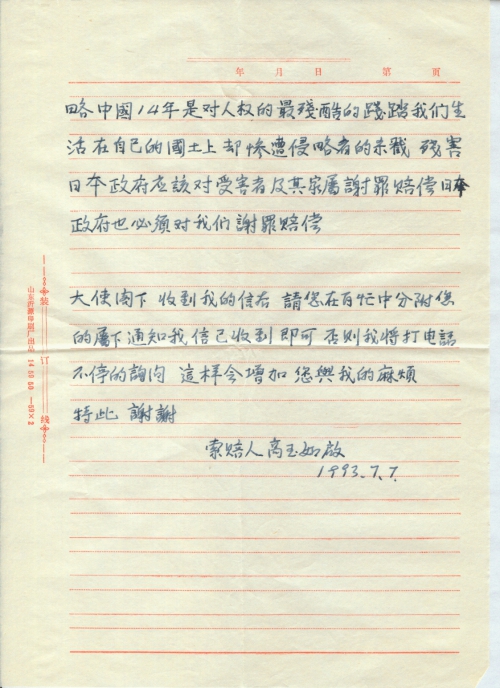 年 月 日 第 页
略中國14年是对人权的最殘酷的踐踏我们生
活在自己的國土上却惨遭侵略者的杀戮 残害
日本政府应該对受害者及其家屬謝罪赔偿日本
政府也必须对我们謝罪赔偿
大使阁下 收到我的信后 請您在百忙中分附您
的屬下通知我信已收到即可 否则我将打电話
不停的詢问 這样会增加您與我的麻烦
特此 謝謝
索赔人高玉如啟
1993.7.7.
装订线